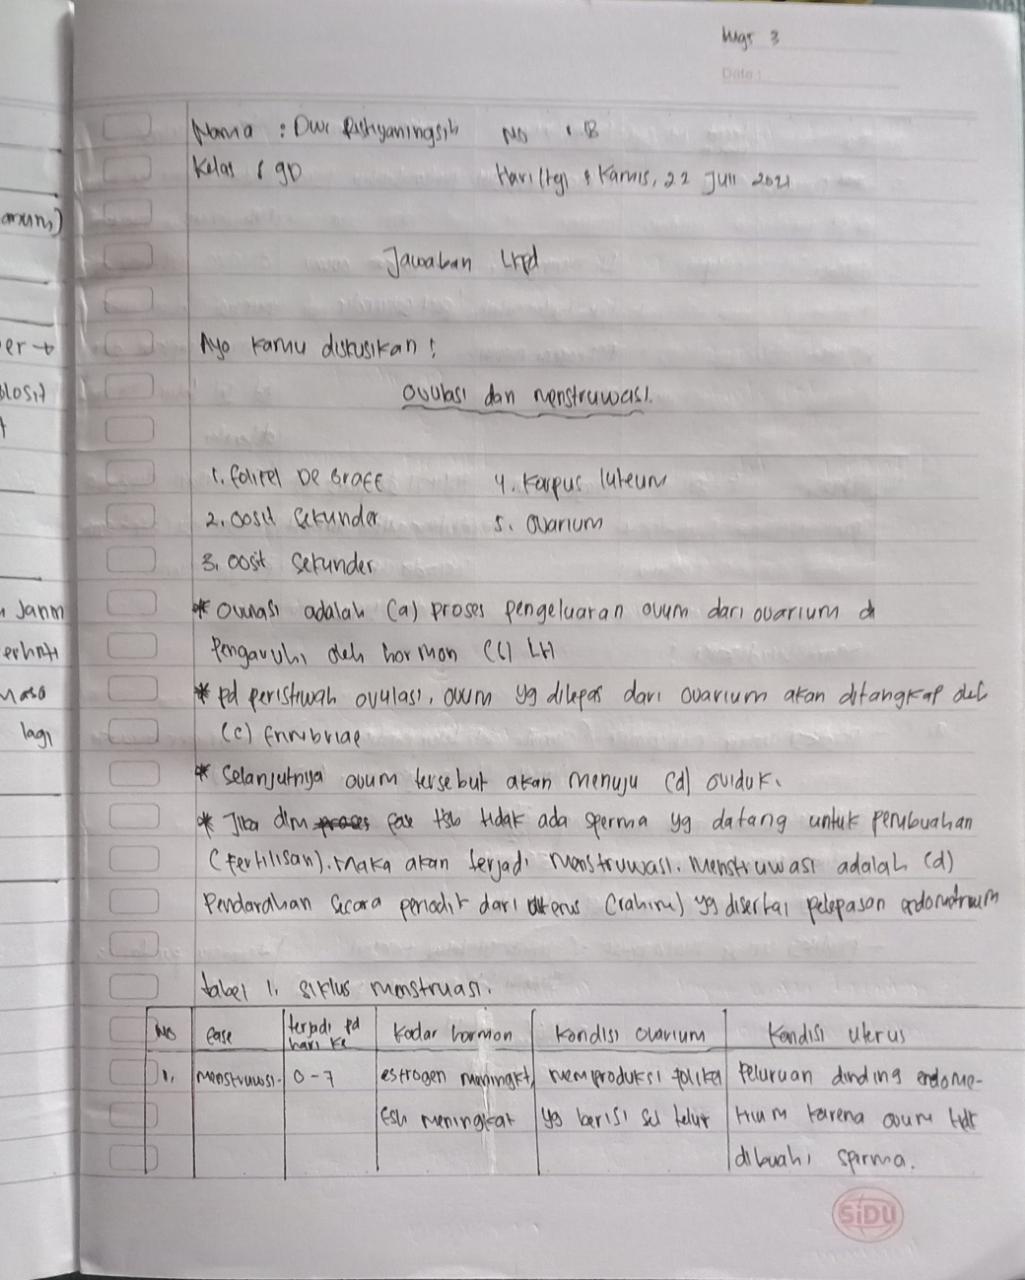 arum)
er →
losit
t
Janin
erhati
Masa
lagi
Tugas 3
Date :
Nama : Dwi No : 8
Kelas : 9D Hari/tgl : Kamis, 22 Juli 2021
Jawaban LKPD
Ayo kamu diskusikan !
Ovulasi dan menstruwasi.
1. Folikel De Graff 4. Korpus luteum
2. Oosit Sekunder 5. Ovarium
3. Oosit Sekunder
* Ovulasi adalah (a) proses pengeluaran ovum dari ovarium di
Pengaruhi oleh hormon (c) LH
* Pd peristiwah ovulasi, ovum yg dilepas dari ovarium akan ditangkap oleh
(c) Fimbriae
* Selanjutnya ovum tersebut akan menuju (d) oviduk.
* Jika dlm fase tsb tidak ada sperma yg datang untuk pembuahan
(Fertilisan). Maka akan terjadi menstruwasi. Menstruwasi adalah (d)
Pendarahan secara periodik dari uterus (rahim) yg disertai pelepasan endometrium
tabel 1. siklus menstruasi.
No Fase terjadi pd Kadar hormon Kondisi Ovarium Kondisi Uterus
hari ke
1. menstruwasi 0-7 estrogen meningkt memproduksi folikel Peluruan dinding endome-
FSH meningkat yg berisi sel telur trium karena ovum tdk
dibuahi sperma.
SiDU